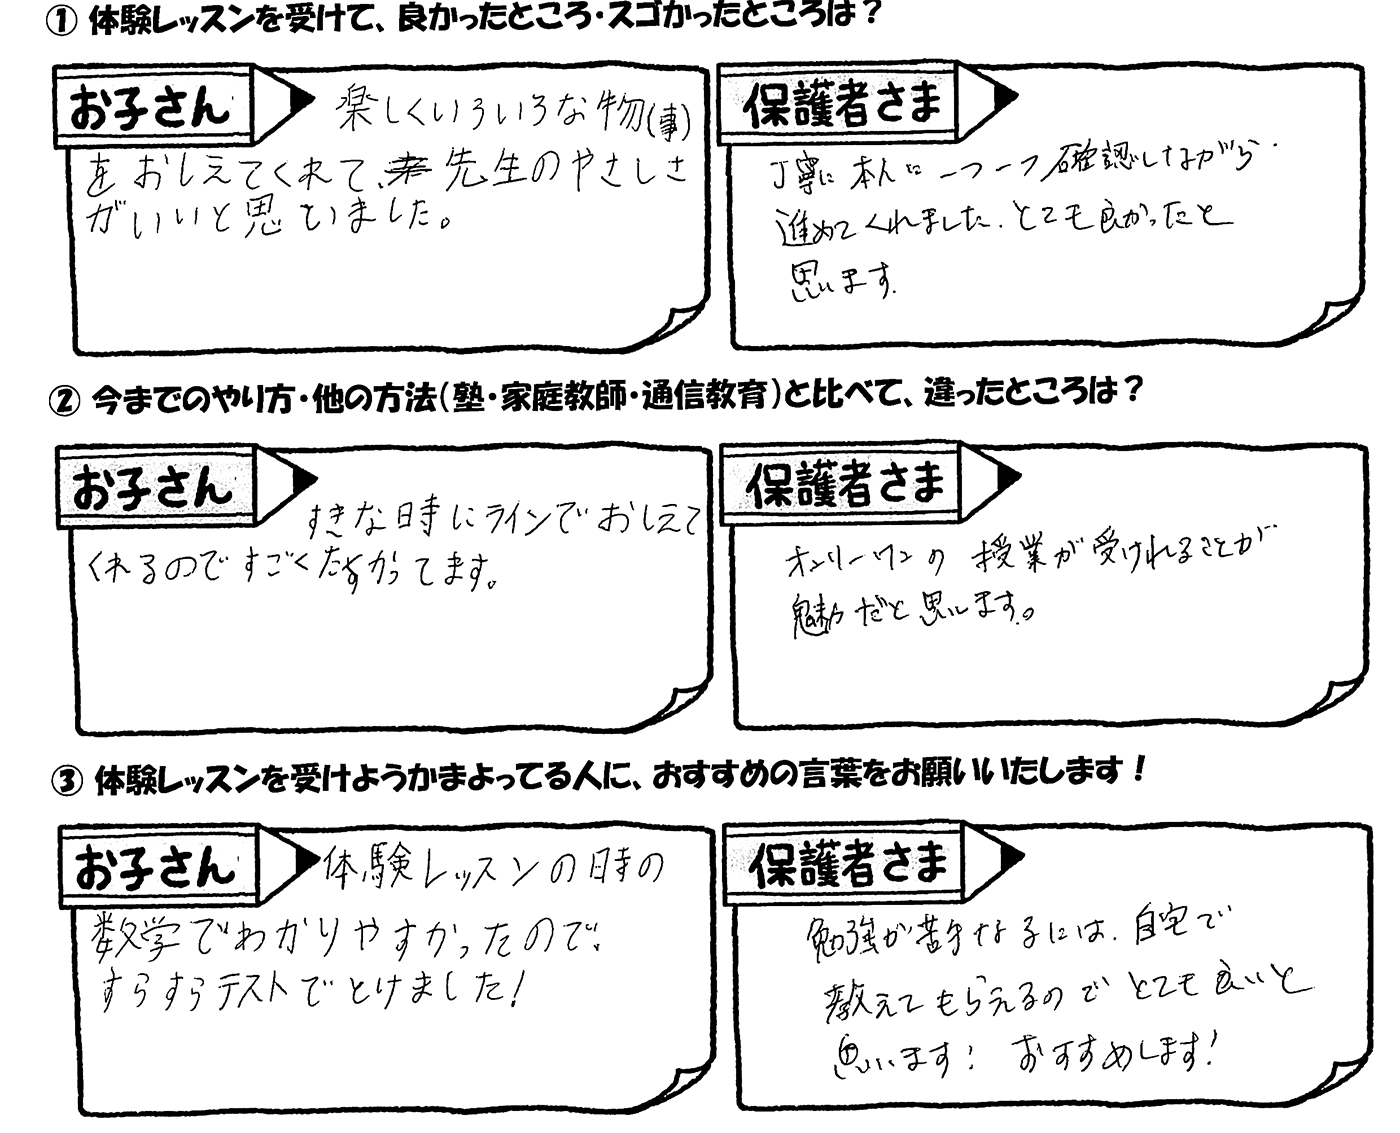 ① 体験レッスンを受けて、良かったところ・スゴかったところは？
お子さん
楽しくいろいろな物(事)
をおしえてくれて、先生のやさしさ
がいいと思いました。
保護者さま
丁寧に本人に一つ一つ確認しながら
進めてくれました。とても良かったと
思います。
② 今までのやり方・他の方法(塾・家庭教師・通信教育)と比べて、違ったところは？
お子さん
すきな時にラインでおしえて
くれるのですごくたすかってます。
保護者さま
オンリーワンの授業が受けれることが
魅力だと思います。
③ 体験レッスンを受けようかまよってる人に、おすすめの言葉をお願いいたします！
お子さん
体験レッスンの時の
数学でわかりやすかったので、
すらすらテストでとけました！
保護者さま
勉強が苦手な子には、自宅で
教えてもらえるのでとても良いと
思います！おすすめします！